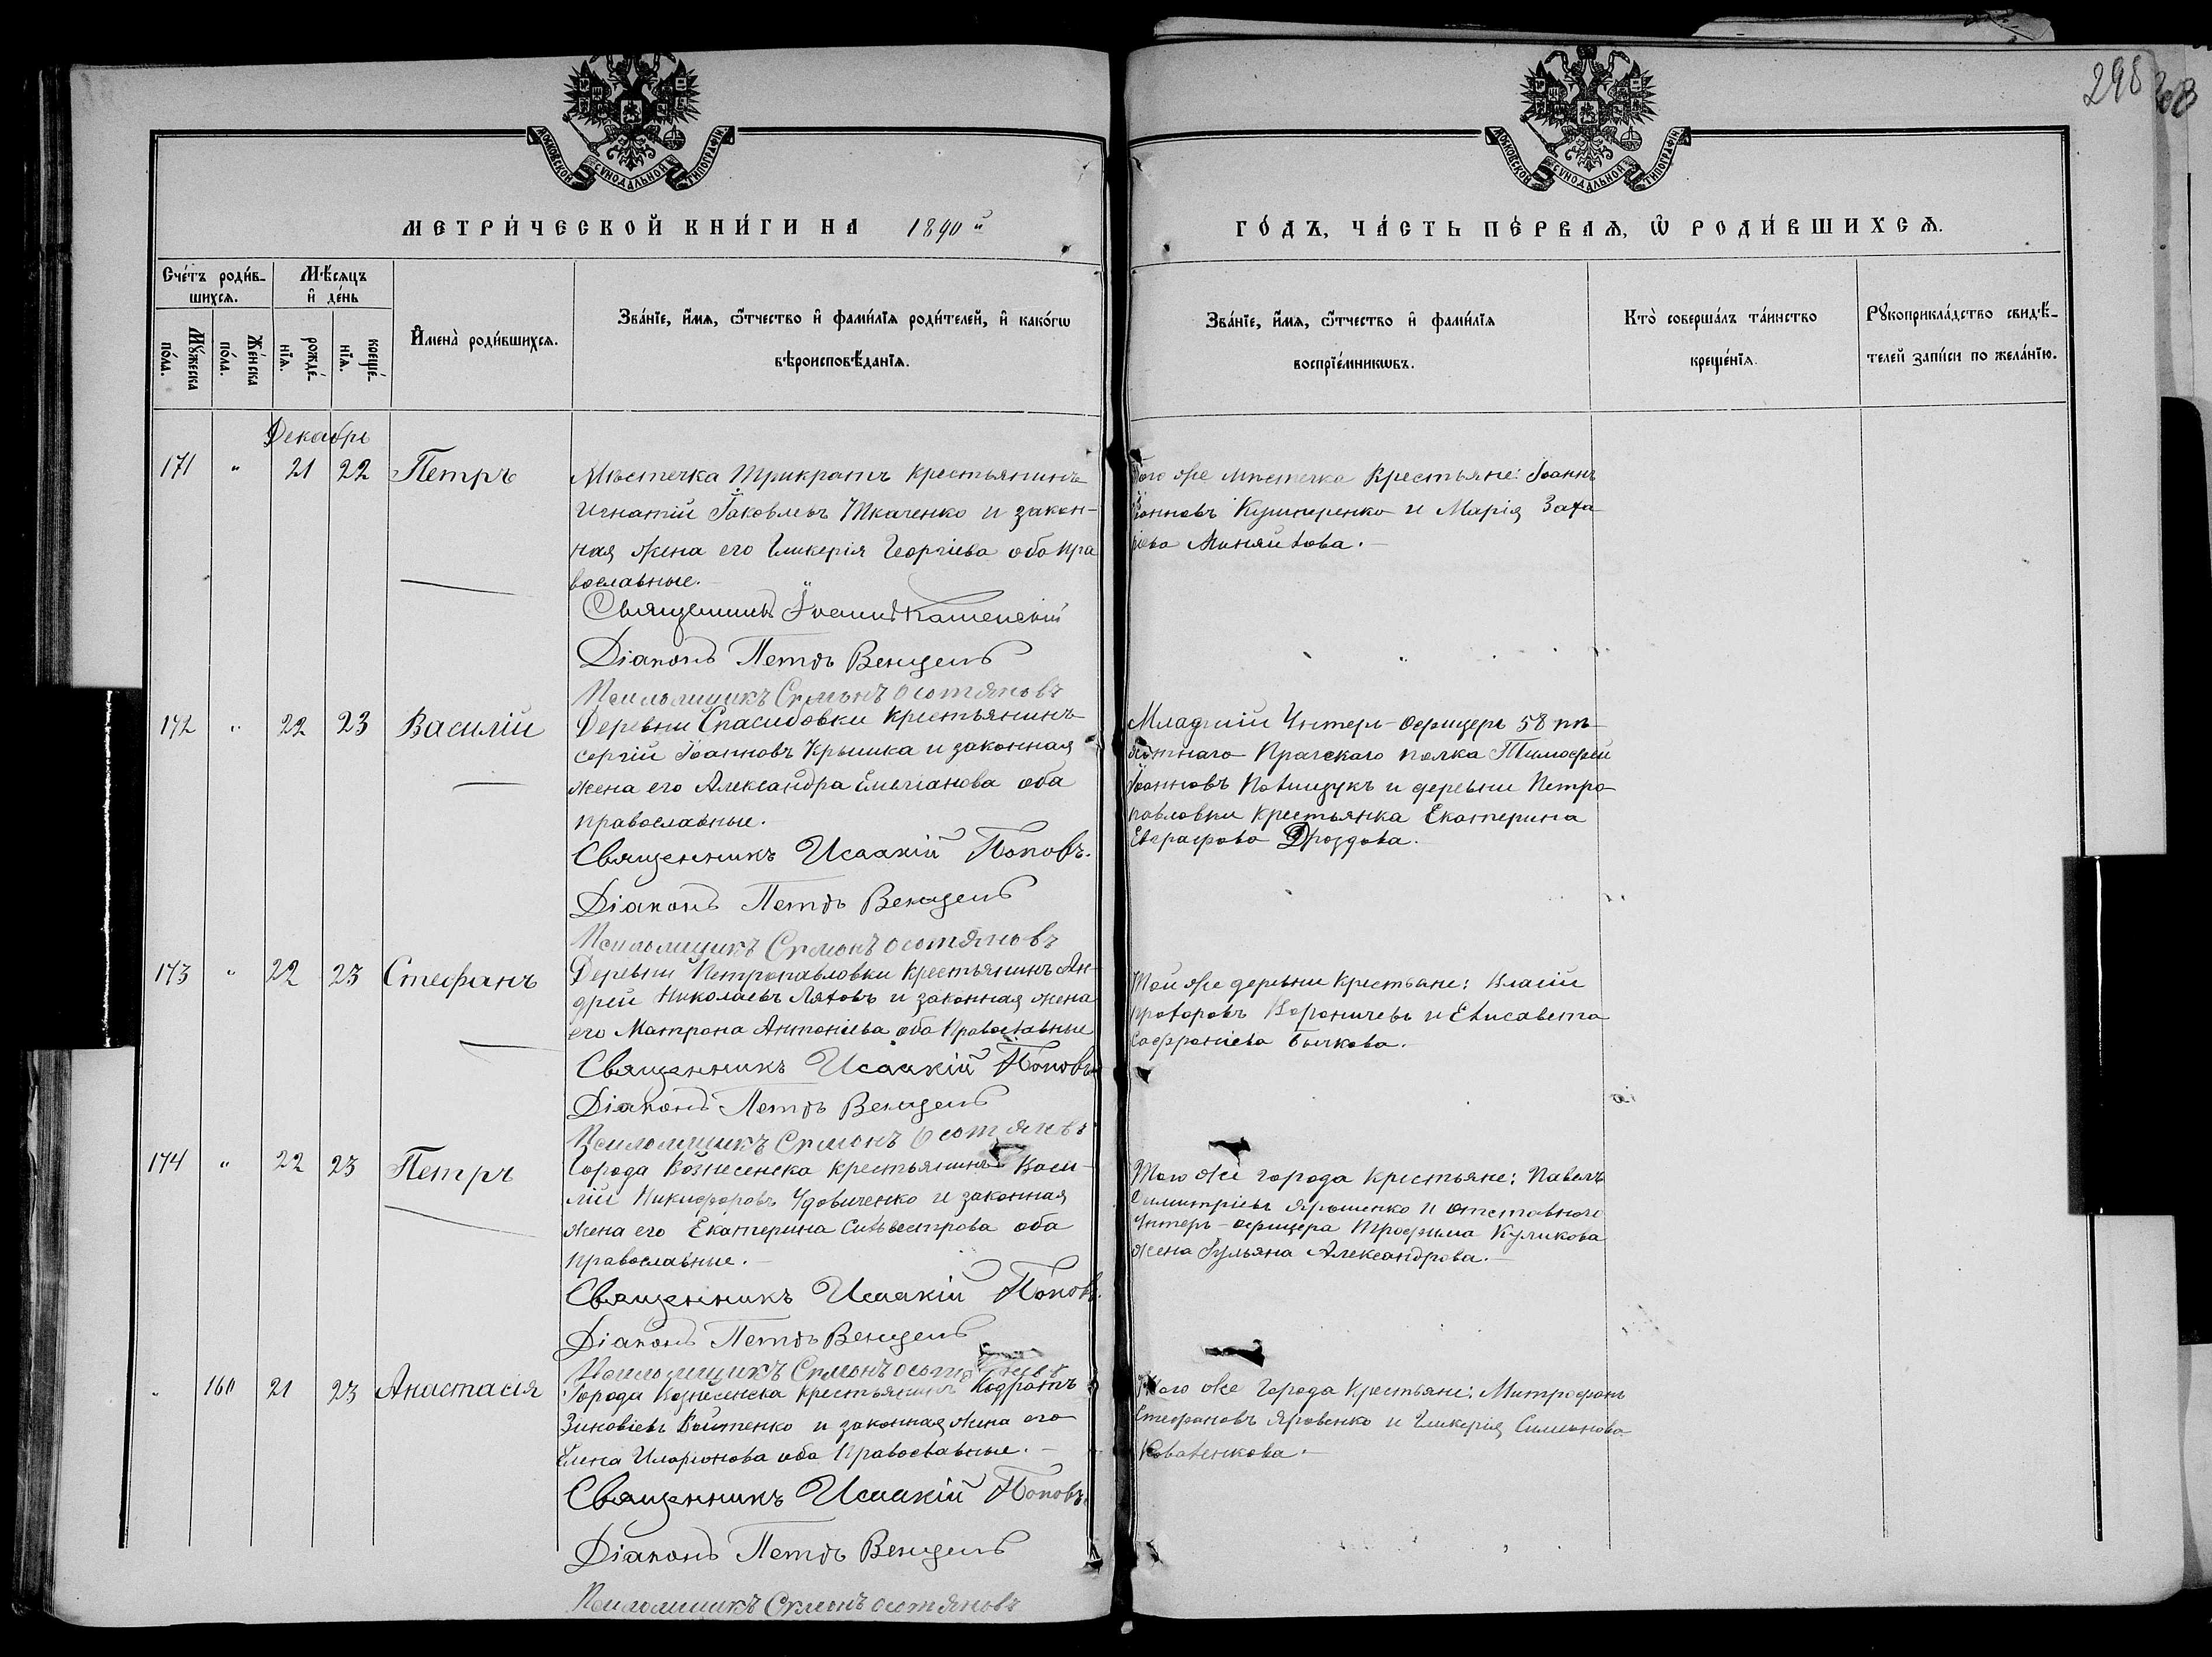 298
МОСКОВСКОЙ СѴНОДАЛЬНОЙ ТИПОГРАФІИ
МОСКОВСКОЙ СѴНОДАЛЬНОЙ ТИПОГРАФІИ
МЕТРИ́ЧЕСКОЙ КНИ́ГИ НА 1890й
ГО́ДЪ, ЧА́СТЬ ПЕ́РВАѦ, Ѡ҆ РОДИ́ВШИХСѦ.
Сче́тъ роди́в-
шихсѧ.
Мꙋ́жеска
по́ла.
Же́нска
по́ла.
Мѣ́сяцъ
и҆ де́нь
рожде́-
нїѧ.
креще́-
нїѧ.
И҆мена̀ роди́вшихсѧ.
Зва́нїе, и҆́мѧ, ѻ҆́тчество и҆ фами́лїѧ роди́телей, и҆ како́гѡ
вѣроисповѣ́данїѧ.
Зва́нїе, и҆́мѧ, ѻ҆́тчество и҆ фами́лїѧ
воспрїе́мникѡвъ.
Кто̀ соверша́лъ та́инство
креще́нїѧ.
Рꙋкоприкла́дство свидѣ́-
телей за́писи по жела́нїю.
Декабрь
171 " 21 22 Петръ
Мѣстечка Трикратъ крестьянинъ
Игнатій Іаковлевъ Ткаченко и закон-
ная жена его Гликерія Георгіева оба пра
вославные.
Священникъ Іоаннъ Каменскій
Діаконъ Петръ Венцель
Псаломщикъ Симонъ Остяновъ
Того же мѣстечка крестьяне: Іоаннъ
Іоанновъ Кушниренко и Марія Заха-
ріева Миняйлова.
172 " 22 23 Василій
Деревни Спасибовки крестьянинъ
Сергій Іоанновъ Крышка и законная
жена его Александра Емеліанова оба
православные.
Священникъ Исаакій Поповъ.
Діаконъ Петръ Венцель
Псаломщикъ Симонъ Остяновъ
Младшій Унтеръ-офицеръ 58 пѣ-
хотнаго Прагскаго полка Тимофей
Іоанновъ Полищукъ и деревни Петро-
павловки крестьянка Екатерина
Евграфова Дроздова.
173 " 22 23 Стефанъ
Деревни Петропавловки крестьянинъ Ан-
дрей Николаевъ Ляховъ и законная жена
его Матрона Антоніева оба православные
Священникъ Исаакій Поповъ
Діаконъ Петръ Венцель
Псаломщикъ Симонъ Остяновъ
Той же деревни крестьяне: Власій
Прохоровъ Вороничевъ и Елисавета
Софроніева Бычкова.
174 " 22 23 Петръ
Города Вознесенска крестьянинъ Васи-
лій Никифоровъ Удовиченко и законная
жена его Екатерина Сильвестрова оба
православные.
Священникъ Исаакій Поповъ.
Діаконъ Петръ Венцель
Псаломщикъ Симонъ Остяновъ
Того же города крестьяне: Павелъ
Димитріевъ Ярошенко и отставного
Унтеръ-офицера Трофима Куликова
жена Іульяна Александрова.
" 160 21 23 Анастасія
Города Вознесенска крестьянинъ Кодратъ
Зиновіевъ Войтенко и законная жена его
Елена Иларіонова оба православные.
Священникъ Исаакій Поповъ.
Діаконъ Петръ Венцель
Псаломщикъ Симонъ Остяновъ
Того же города крестьяне: Митрофанъ
Стефановъ Яровенко и Гликерія Симеонова
Коваленкова.